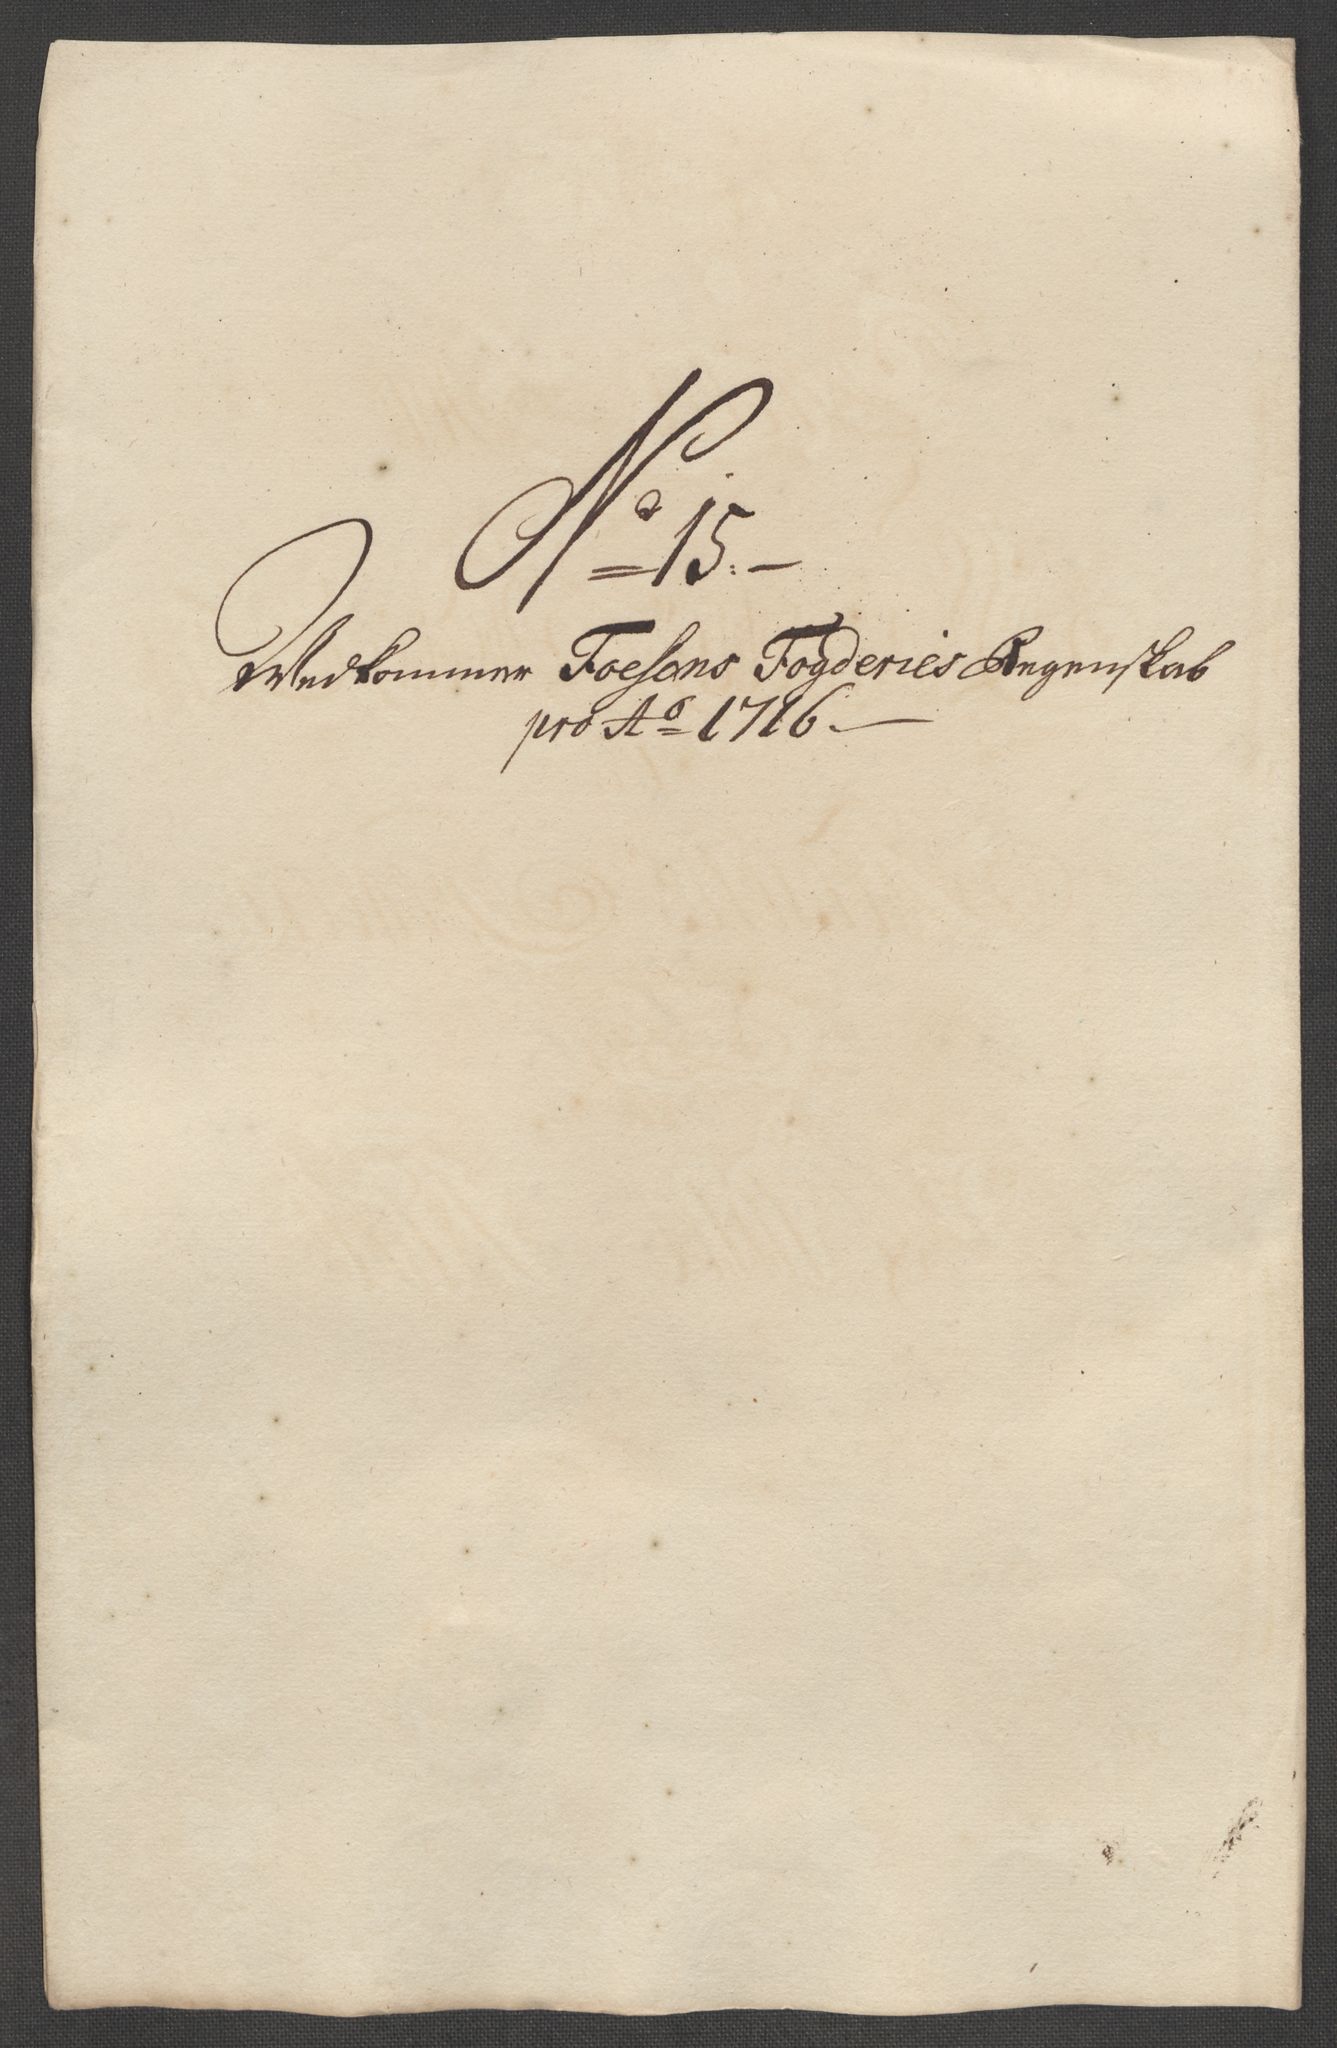 No 15.
Wedkommer Foesens Fogderies Regenskab
pro Ao 1716.